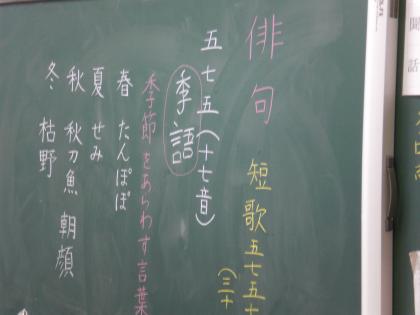 俳句
短歌 五七五七
(三十
五七五(十七音)
季語
季節をあらわす言葉
春 たんぽぽ
夏 せみ
秋 秋刀魚 朝顔
冬 枯野
聞
話